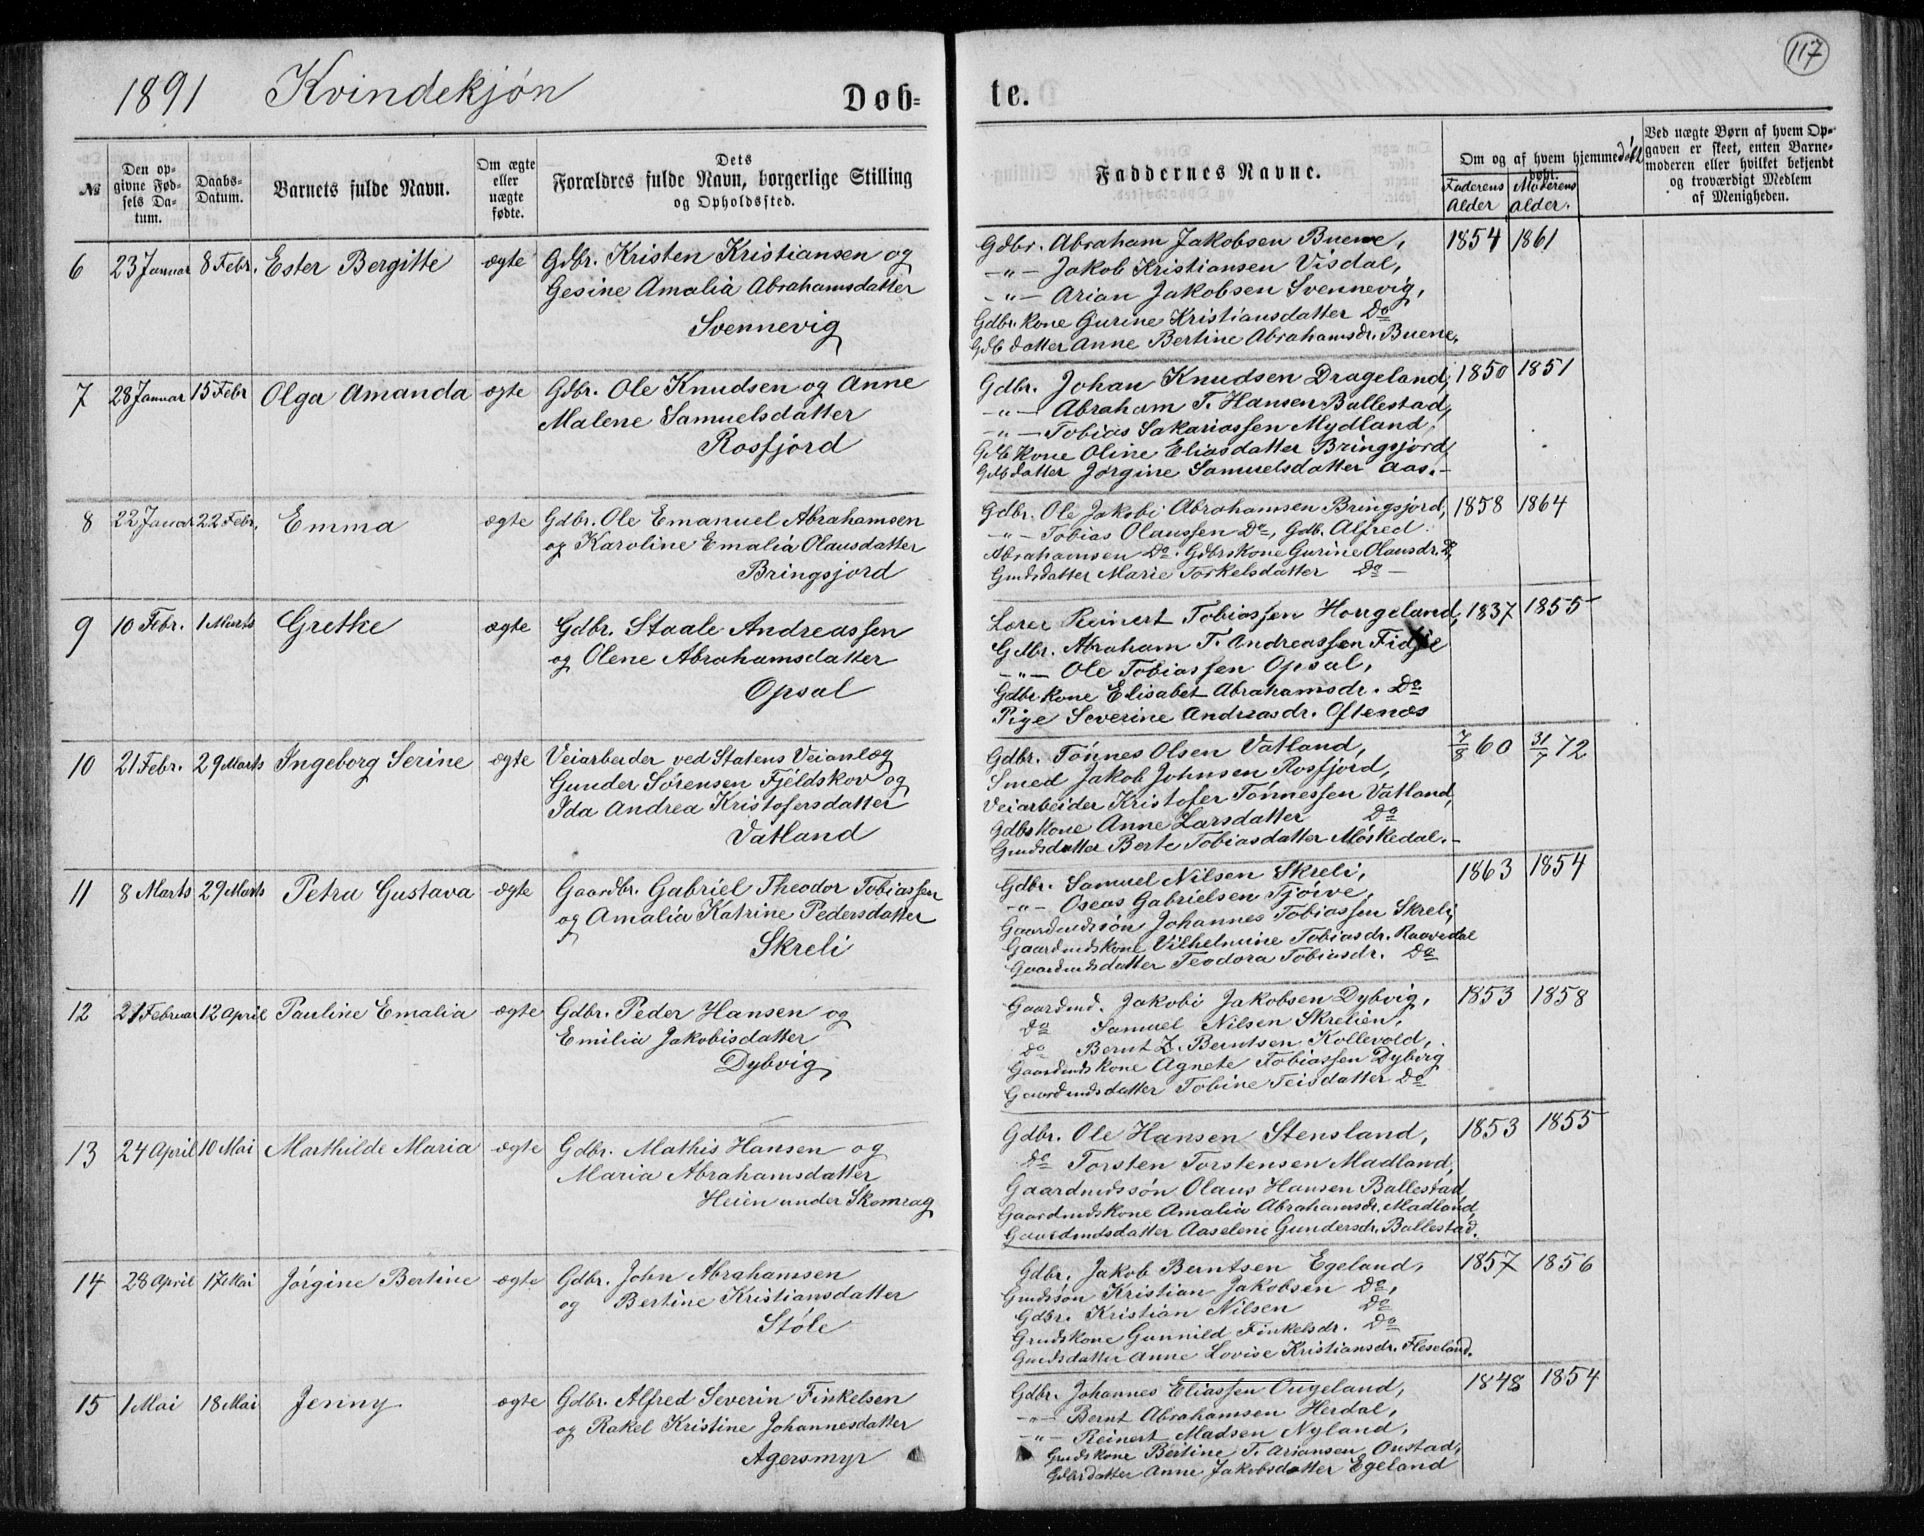 117
1891 Kvindekjøn Døb-
te.
№
Den op-
givne Fød-
sels Da-
tum.
Daabs-
Datum.
Barnets fulde Navn.
Om ægte
eller
uægte
fødte.
Dets
Forældres fulde Navn, borgerlige Stilling
og Opholdssted.
Faddernes Navne.
Om og af hvem hjemmedøbt
døbt.
Faderens
Alder
Moderens
Alder.
Ved uægte Børn af hvem Op-
gaven er skeet, enten Barne-
moderen eller hvilket bekjendt
og troværdigt Medlem
af Menigheden.
6 23 Januar 8 Febr. Ester Bergitte ægte Gdbr. Kristen Kristiansen og
Gesine Amalia Abrahamsdatter
Svennevig
Gdbr. Abraham Jakobsen Buene, 1854 1861
-"- Jakob Kristiansen Visdal,
-"- Arian Jakobsen Svennevig,
Gdbr. kone Gurine Kristiansdatter Do
Gdb datter Anne Bertine Abrahamsdr. Buene.
7 28 Januar 15 Febr Olga Amanda ægte Gdbr. Ole Knudsen og Anne
Malene Samuelsdatter
Rosfjord
Gdbr. Johan Knudsen Drageland, 1850 1851
-"- Abraham T. Hansen Ballestad,
-"- Tobias Sakariassen Mydland,
Gdb kone Oline Eliasdatter Bringsjord,
Gdb datter Jørgine Samuelsdatter Aas.-
8 22 Januar 22 Febr. Emma ægte Gdbr. Ole Emanuel Abrahamsen
og Karoline Emalia Olausdatter
Bringsjord
Gdbr. Ole Jakobi Abrahamsen Bringsjord, 1858 1864
-"- Tobias Olaussen Do, Gdb. Alfred
Abrahamsen Do. Gdbrskone Gurine Olausdr. Do,
Gmdsdatter Marie Torkelsdatter Do -
9 10 Febr. 1 Marts Grethe ægte Gdbr. Staale Andreassen
og Olene Abrahamsdatter
Opsal
Lærer Reinert Tobiassen Hougeland, 1837 1855
Gdbr. Abraham T. Andreassen Fidje
-"- Ole Tobiassen Opsal,
Gdbr kone Elisabet Abrahamsdr. Do
Pige Severine Andreasdr. Oftenæs
10 21 Febr. 29 Marts Ingeborg Serine ægte Veiarbeider ved Statens Veianlæg
Gunder Sørensen Fjeldskov og
Ida Andrea Kristofersdatter
Vatland
Gdbr. Tønnes Olsen Vatland, 7/8 60 31/7 72
Smed Jakob Johnsen Rosfjord,
Veiarbeider Kristofer Tønnessen Vatland,
Gdbskone Anne Larsdatter Do
Gmdsdatter Berte Tobiasdatter Møskedal.-
11 8 Marts 29 Marts Petra Gustava ægte Gaardbr. Gabriel Theodor Tobiassen
og Amalia Katrine Pedersdatter
Skreli
Gdbr. Samuel Nilsen Skreli, 1863 1854
-"- Oseas Gabrielsen Tjøive,
Gaardmdssøn Johannes Tobiassen Skreli
Gaardmdskone Vilhelmine Tobiasdr. Raavedal
Gaardmdsdatter Teodora Tobiasdr. Do
12 21 Februar 12 April Pauline Emalia ægte Gdbr. Peder Hansen og
Emilia Jakobisdatter
Dybvig
Gaardmd. Jakobi Jakobsen Dybvig, 1853 1858
Do Samuel Nilsen Skrelien,
Do Bernt Z. Berntsen Kollevold,
Gaardmds kone Agnete Tobiassen Dybvig
Gaardmdsdatter Tobine Teisdatter Do
13 24 April 10 Mai Marthilde Maria ægte Gdbr. Mathis Hansen og
Maria Abrahamsdatter
Heien under Skomrag
Gdbr. Ole Hansen Stensland, 1853 1855
Do Torsten Torstensen Madland,
Gaardmdssøn Olaus Hansen Ballestad
Gaardmdskone Amalia Abrahamsdr. Madland,
Gaardmdsdatter Aaselene Gundersdr. Ballestad.
14 28 April 17 Mai Jørgine Bertine ægte Gdbr. John Abrahamsen
og Bertine Kristiansdatter
Støle
Gdbr. Jakob Berntsen Egeland, 1857 1856
Gmdssøn Kristian Jakobsen Do,
Gdbr. Kristian Nilsen Do
Gmdskone Gunnild Finkelsdr. Do
Gmdsdatter Anne Lovise Kristiansdr. Fleseland.
15 1 Mai 18 Mai Jenny ægte Gdbr. Alfred Severin Finkelsen
og Rakel Kristine Johannesdatter
Agersmyr
Gdbr. Johannes Eliassen Ougeland, 1848 1854
-"- Bernt Abrahamsen Herdal,
-"- Reinert Madsen Nyland,
Gmdskone Bertine T. Ariansen Oustad,
Gdbrdatter Anne Jakobsdatter Egeland